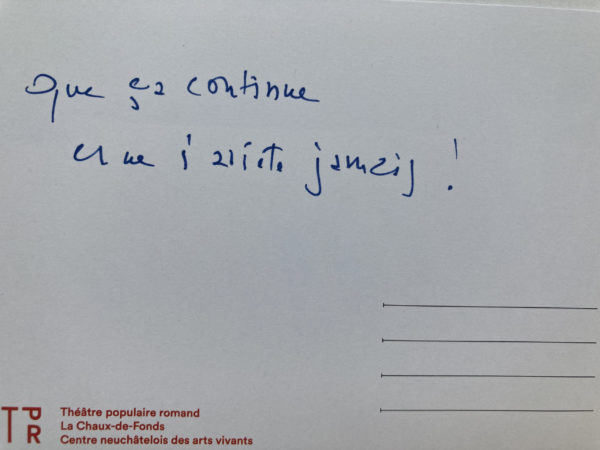 Que ça continue
et ne s'arrête jamais !
TPR
Théâtre populaire romand
La Chaux-de-Fonds
Centre neuchâtelois des arts vivants